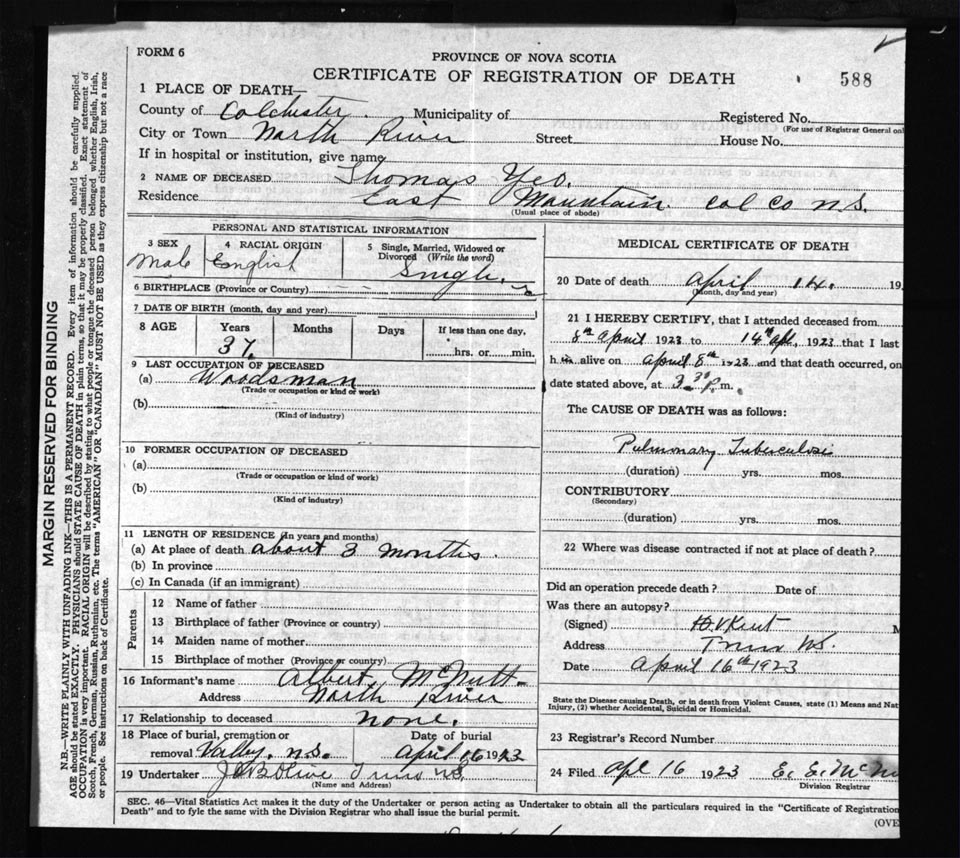 FORM 6
PROVINCE OF NOVA SCOTIA
CERTIFICATE OF REGISTRATION OF DEATH
588
1 PLACE OF DEATH—
County of Colchester. Municipality of Registered No.
(For use of Registrar General on
City or Town North River Street House No.
If in hospital or institution, give name
2 NAME OF DECEASED Thomas Yeo.
Residence East Mountain Col Co N.S.
(Usual place of abode)
PERSONAL AND STATISTICAL INFORMATION
3 SEX Male
4 RACIAL ORIGIN English
5 Single, Married, Widowed or Divorced (Write the word) Single.
6 BIRTHPLACE (Province or Country)
7 DATE OF BIRTH (month, day and year)
8 AGE Years Months Days If less than one day,
37. hrs. or min.
9 LAST OCCUPATION OF DECEASED
(a) Woodsman
(Trade or occupation or kind of work)
(b)
(Kind of industry)
10 FORMER OCCUPATION OF DECEASED
(a)
(Trade or occupation or kind of work)
(b)
(Kind of industry)
11 LENGTH OF RESIDENCE (In years and months)
(a) At place of death about 3 months.
(b) In province
(c) In Canada (if an immigrant)
Parents
12 Name of father
13 Birthplace of father (Province or country)
14 Maiden name of mother
15 Birthplace of mother (Province or country)
16 Informant's name Albert McNutt
Address North River
17 Relationship to deceased none.
18 Place of burial, cremation or Date of burial
removal Valley. N.S. April 16 1923
19 Undertaker Olive Truro N.S.
(Name and Address)
MEDICAL CERTIFICATE OF DEATH
20 Date of death April 14. 19
(Month, day and year)
21 I HEREBY CERTIFY, that I attended deceased from
8th April 1923 to 14th Apl. 1923 that I last
h im alive on April 8th 1923 and that death occurred, on
date stated above, at 3.30 P m.
The CAUSE OF DEATH was as follows:
Pulmonary Tuberculosis
(duration) yrs. mos.
CONTRIBUTORY
(Secondary)
(duration) yrs. mos.
22 Where was disease contracted if not at place of death?
Did an operation precede death? Date of
Was there an autopsy?
(Signed) Kent M
Address Truro N.S.
Date April 16th 1923
State the Disease causing Death, or in death from Violent Causes, state (1) Means and Nat
Injury, (2) whether Accidental, Suicidal or Homicidal.
23 Registrar's Record Number
24 Filed Apl 16 1923 E. E. McN
Division Registrar
SEC. 46—Vital Statistics Act makes it the duty of the Undertaker or person acting as Undertaker to obtain all the particulars required in the "Certificate of Registration
Death" and to fyle the same with the Division Registrar who shall issue the burial permit.
(OVE
MARGIN RESERVED FOR BINDING
N.B.—WRITE PLAINLY WITH UNFADING INK—THIS IS A PERMANENT RECORD. Every item of information should be carefully supplied.
AGE should be stated EXACTLY. PHYSICIANS should STATE CAUSE OF DEATH in plain terms, so that it may be properly classified. Exact statement of
OCCUPATION is very important. RACIAL ORIGIN will be described by stating to what people or tongue the deceased person belonged whether English, Irish,
Scotch, French, German, Russian, Ruthenian, etc. The terms "AMERICAN" OR "CANADIAN" MUST NOT BE USED as they express citizenship but not a race
or people. See instructions on back of Certificate.